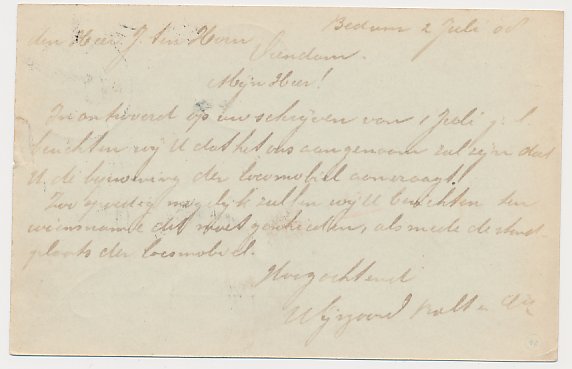 Bedum 2 Juli 08
den Heer J. ten Horn
Veendam.
Mijn Heer!
In antwoord op uw schrijven van 1 Juli j.l.
berichten wij U dat het ons aangenaam zal zijn dat
U de bijwoning der locomobiel aanvraagt.
Zoo spoedig mogelijk zullen wij U berichten ten
wiens name dit moet geschieden, als mede de stand
plaats der locomobiel.
Hoogachtend